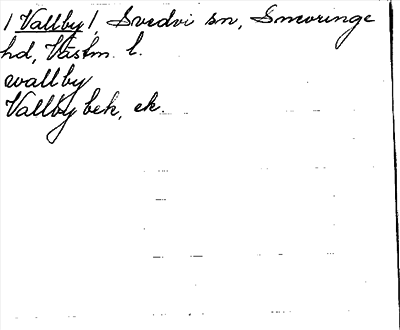 /Vallby/, Svedvi sn, Snevringe
hd, Västm. l.
wallby
Vallby bek, ek.